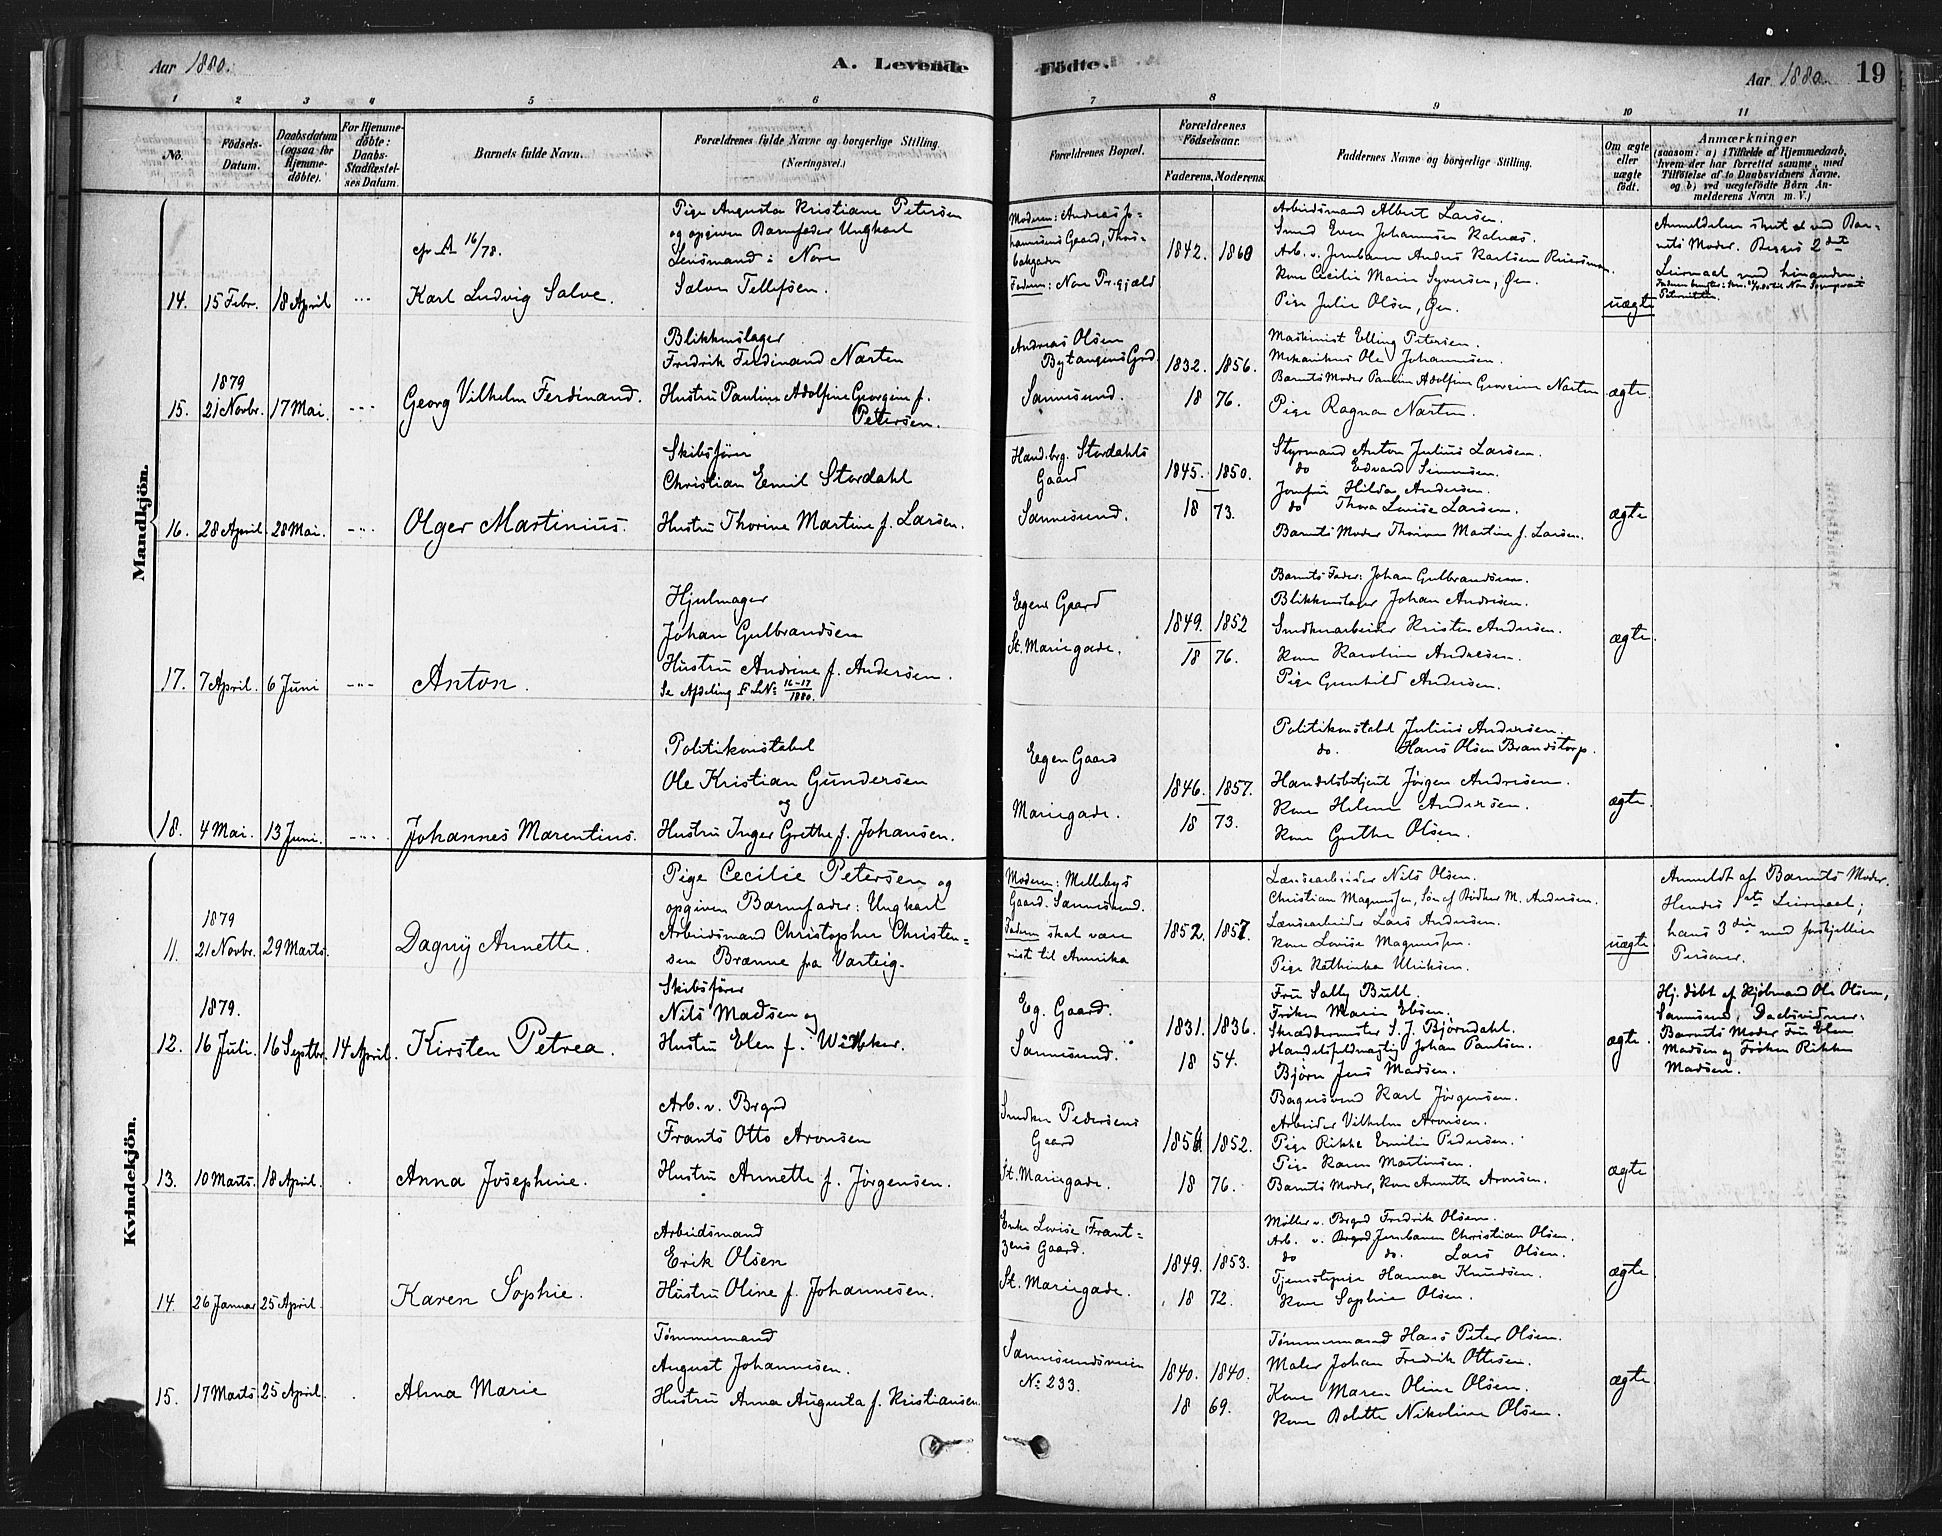 Aar 1880.
A. Levende
Födte.
Aar 1880.
19
1 2 3 4 5 6 7 8 9 10 11
No.
Födsels-
Datum.
Daabsdatum
(ogsaa for
Hjemme-
döbte).
For Hjemme-
döbte:
Daabs-
Stadfæstel-
ses Datum.
Barnets fulde Navn.
Forældrenes fulde Navne og borgerlige Stilling.
(Næringsvei.)
Forældrenes Bopæl.
Forældrenes
Födselsaar.
Faderens. Moderens.
Faddernes Navne og borgerlige Stilling.
Om ægte
eller
uægte
födt.
Anmærkninger
(saasom: a) i Tilfælde af Hjemmedaab,
hvem der har forrettet samme, med
Tilföielse af to Daabsvidners Navne,
og b) ved uægtefödte Börn An-
melderens Navn m. V.)
Mandkjön.
14. 15 Febr. 18 April
cfr A 16/78.
Karl Ludvig Salve.
Pige Augusta Kristiane Petersen
og opgiven Barnefader Ungkarl
Lensmand i Nore
Salve Tellefsen.
Moderen: Andreas Jo-
hannesens Gaard,
Faderen: Nore Pr.gjæld
1842. 1860
Arbeidsmand Albert Larsen.
Smed Even Johannesen Kalnæs.
Arb. v. Jernbanen Anders Karlsen
Kone Cecilie Marie Syversen, Øen.
Pige Julie Olsen, Øen.
uægte
Anmeldelsen skeet ved Bar-
nets Moder. Begges 2det
Leiermaal med hinanden.
15. 1879
21 Novbr. 17 Mai.
Georg Vilhelm Ferdinand.
Blikkenslager
Fredrik Ferdinand Narten
Hustru Pauline Adolfine Georgine f.
Petersen.
Andreas Olsen
Bytangens Grd.
Sannesund.
1832. 1856.
18 76.
Maskinist Elling Petersen.
Mekanikus Ole Johannesen.
Barnets Moder Pauline Adolfine Georgine Narten
Pige Ragna Narten.
ægte.
16. 28 April 28 Mai.
Olger Martinius.
Skibsfører
Christian Emil Stordahl
Hustru Thorine Martine f. Larsen.
Hand.brg. Stordahls
Gaard
Sannesund.
1845. 1850.
18 73.
Styrmand Anton Julius Larsen.
do Edvard Simensen.
Jomfru Hilda Andersen.
do Thora Lovise Larsen.
Barnets Moder Thorine Martine f. Larsen.
ægte
17. 7 April. 6 Juni
Anton.
Hjulmager
Johan Gulbrandsen
Hustru Andrine f. Andersen.
Se Afdeling F LNo 16-17/1880.
Egen Gaard
St. Mariegade.
1849. 1852
18 76.
Barnets Fader: Johan Gulbrandsen.
Blikkenslager Johan Andersen.
Snedkerarbeider Kristen Andersen.
Kone Karoline Andersen.
Pige Gunhild Andersen.
ægte.
18. 4 Mai. 13 Juni.
Johannes Marentius.
Politikonstabel
Ole Kristian Gundersen
og
Hustru Inger Grethe f. Johansen.
Egen Gaard
Mariegade.
1846. 1857.
18 73.
Politikonstabel Julius Andersen.
do. Hans Olsen Brandstorp.
Handelsbetjent Jørgen Andersen.
Kone Helene Andersen.
Kone Grethe Olsen.
ægte.
Kvindekjön.
11. 1879
21 Novbr. 29 Marts.
Dagny Annette.
Pige Cecilie Petersen og
opgiven Barnefader: Ungkarl
Arbeidsmand Christopher Christen-
sen Brænne fra Varteig.
Moderen: Mellebys
Gaard. Sannesund.
Faderen skal være
reist til Amerika
1852. 1857.
Læssearbeider Nils Olsen.
Christian Magnussen, Søn af Bødker M. Andersen.
Læssearbeider Lars Andersen.
Kone Lovise Magnussen.
Pige Kathinka Ulriksen.
uægte
Anmeldt af Barnets Moder.
Hendes 1ste Leiermaal;
hans 3die med forskjellige
Personer.
12. 1879.
16 Juli. 16 Septbr. 14 April.
Kirsten Petrea.
Skibsfører
Nils Madsen og
Hustru Elen f.
Eg. Gaard.
Sannesund.
1831. 1836.
18 54.
Fru Sally Bull.
Frøken Marie Ebsen.
Skræddermester S. J. Bjørndahl.
Handelsfuldmægtig Johan Paulsen.
Bjørn Jens Madsen.
ægte.
Hj. döbt af Kjøbmand Ole Olsen,
Sannesund, Daabsvidner:
Barnets Moder Fru Elen
Madsen og Frøken Rikke
Madsen.
13. 10 Marts. 18 April.
Anna Josephine.
Arb. v. Brgrd
Frants Otto Aronsen
Hustru Annette f. Jørgensen.
Snedker Pedersens
Gaard
St. Mariegade.
1854. 1852.
18 76.
Bagersvend Karl Jørgensen.
Arbeider Vilhelm Aronsen.
Pige Rikke Emilie Pedersen.
Pige Karen Martinsen.
Barnets Moder, Kone Annette Aronsen.
ægte
14. 26 Januar 25 April.
Karen Sophie.
Arbeidsmand
Erik Olsen
Hustru Oline f. Johannesen.
Enke Lovise Frant-
zens Gaard.
St. Mariegade.
1849. 1853.
18 72.
Møller v. Brgrd Fredrik Olsen.
Arb. v. Jernbanen Christian Olsen.
do do. Lars Olsen.
Tjenestepige Hanna Knudsen.
Kone Sophie Olsen.
ægte
15. 17 Marts. 25 April.
Anna Marie
Tømmermand
August Johannesen.
Hustru Anna Augusta f. Kristiansen.
Sannesundsveien
No 233.
1840. 1840.
18 69.
Tømmermand Hans Peter Olsen.
Maler Johan Fredrik Ottesen.
Kone Maren Oline Olsen.
Kone Bolette Nikoline Olsen.
ægte